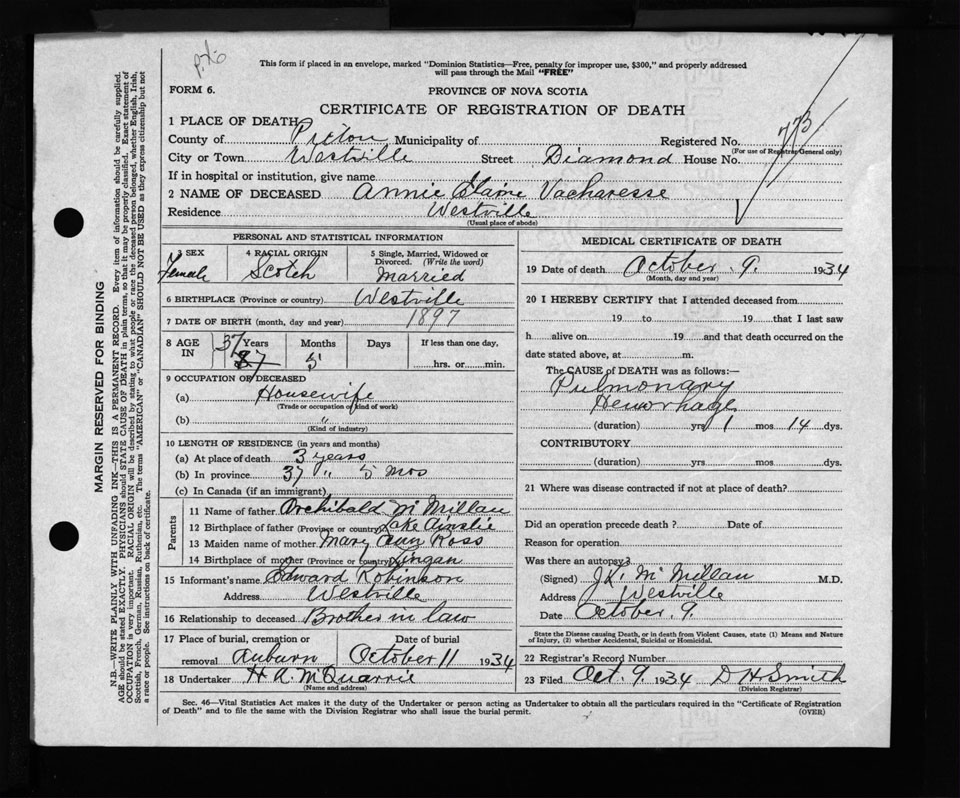 This form if placed in an envelope, marked "Dominion Statistics—Free, penalty for improper use, $300," and properly addressed
will pass through the Mail "FREE"
FORM 6.
PROVINCE OF NOVA SCOTIA
CERTIFICATE OF REGISTRATION OF DEATH
1 PLACE OF DEATH
County of Pictou Municipality of Registered No. 773
(For use of Registrar General only)
City or Town Westville Street Diamond House No.
If in hospital or institution, give name
2 NAME OF DECEASED Annie Vacharesse
Residence Westville
(Usual place of abode)
PERSONAL AND STATISTICAL INFORMATION
3 SEX Female
4 RACIAL ORIGIN Scotch
5 Single, Married, Widowed or Divorced. (Write the word) Married
6 BIRTHPLACE (Province or country) Westville
7 DATE OF BIRTH (month, day and year) 1897
8 AGE IN 37 Years 5 Months Days If less than one day, hrs. or min.
9 OCCUPATION OF DECEASED
(a) Housewife
(Trade or occupation or kind of work)
(b) "
(Kind of industry)
10 LENGTH OF RESIDENCE (in years and months)
(a) At place of death 3 years
(b) In province 37 " 5 mos
(c) In Canada (if an immigrant)
Parents
11 Name of father Archibald McMillan
12 Birthplace of father (Province or country) Lake Ainslie
13 Maiden name of mother Mary Ann Ross
14 Birthplace of mother (Province or country) Lingan
15 Informant's name Edward Robinson
Address Westville
16 Relationship to deceased Brother in law
17 Place of burial, cremation or removal Auburn
Date of burial October 11 1934
18 Undertaker H A. McQuarrie
(Name and address)
MEDICAL CERTIFICATE OF DEATH
19 Date of death October 9. 1934
(Month, day and year)
20 I HEREBY CERTIFY that I attended deceased from
19 to 19 that I last saw
h alive on 19 and that death occurred on the
date stated above, at m.
The CAUSE OF DEATH was as follows:—
Pulmonary
Hemorrhage
(duration) yrs 1 mos 14 dys.
CONTRIBUTORY
(duration) yrs mos dys.
21 Where was disease contracted if not at place of death?
Did an operation precede death ? Date of
Reason for operation
Was there an autopsy?
(Signed) McMillan M.D.
Address Westville
Date October 9.
State the Disease causing Death, or in death from Violent Causes, state (1) Means and Nature
of Injury, (2) whether Accidental, Suicidal or Homicidal.
22 Registrar's Record Number
23 Filed Oct. 9 1934 D H Smith
(Division Registrar)
Sec. 46—Vital Statistics Act makes it the duty of the Undertaker or person acting as Undertaker to obtain all the particulars required in the "Certificate of Registration
of Death" and to file the same with the Division Registrar who shall issue the burial permit.
(OVER)
MARGIN RESERVED FOR BINDING
N.B.—WRITE PLAINLY WITH UNFADING INK—THIS IS A PERMANENT RECORD. Every item of information should be carefully supplied.
AGE should be stated EXACTLY. PHYSICIANS should STATE CAUSE OF DEATH in plain terms, so that it may be properly classified. Exact statement of
OCCUPATION is very important. RACIAL ORIGIN will be described by stating to what people or race the deceased person belonged, whether English, Irish,
Scottish, French, German, Russian, Ruthenian, etc. The terms "AMERICAN" or "CANADIAN" SHOULD NOT BE USED as they express citizenship but not
a race or people. See instructions on back of certificate.